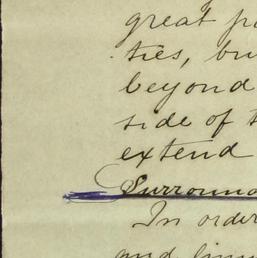 great p
ties, bu
beyond
side of t
extend
Surround
In order
and